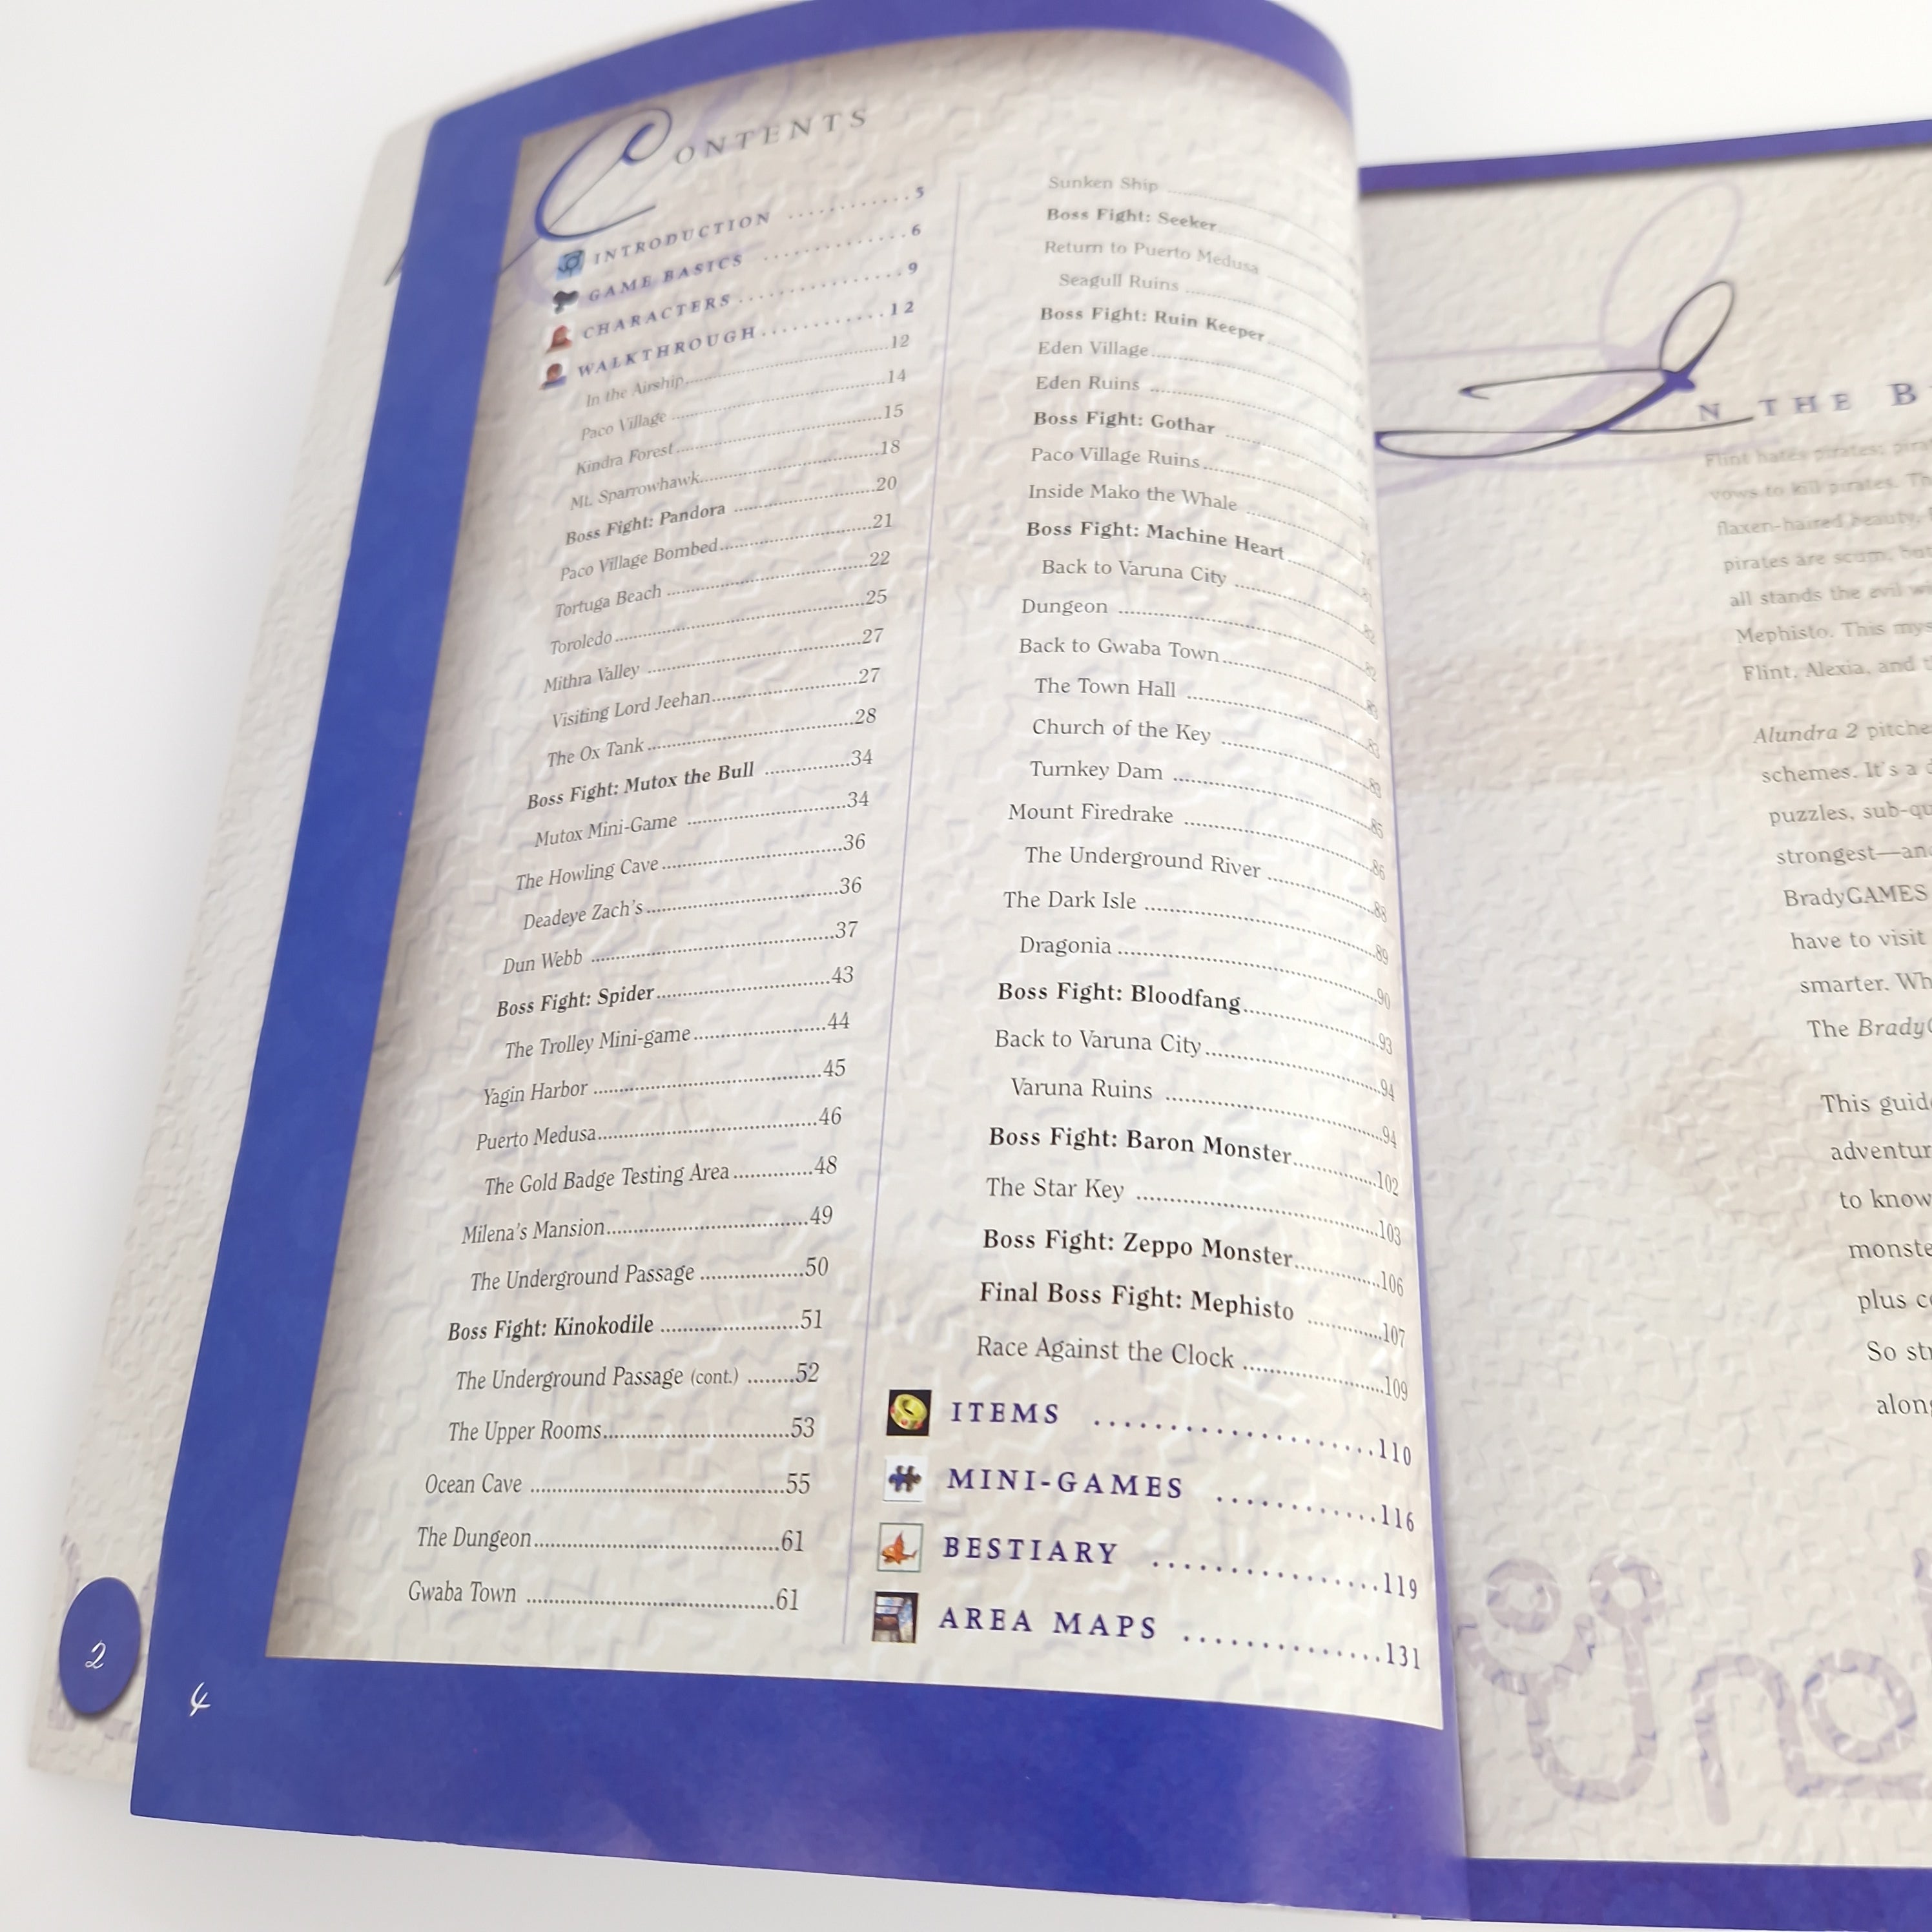 CONTENTS
INTRODUCTION ............5
GAME BASICS ............6
CHARACTERS ............9
WALKTHROUGH ............12
In the Airship ............12
Paco Village ............14
Kindra Forest ............15
Mt. Sparrowhawk ............18
Boss Fight: Pandora ............20
Paco Village Bombed ............21
Tortuga Beach ............22
Toroledo ............25
Mithra Valley ............27
Visiting Lord Jeehan ............27
The Ox Tank ............28
Boss Fight: Mutox the Bull ............34
Mutox Mini-Game ............34
The Howling Cave ............36
Deadeye Zach's ............36
Dun Webb ............37
Boss Fight: Spider ............43
The Trolley Mini-game ............44
Yagin Harbor ............45
Puerto Medusa ............46
The Gold Badge Testing Area ............48
Milena's Mansion ............49
The Underground Passage ............50
Boss Fight: Kinokodile ............51
The Underground Passage (cont.) ........52
The Upper Rooms ............53
Ocean Cave ............55
The Dungeon ............61
Gwaba Town ............61
Sunken Ship
Boss Fight: Seeker
Return to Puerto Medusa
Seagull Ruins
Boss Fight: Ruin Keeper
Eden Village
Eden Ruins
Boss Fight: Gothar
Paco Village Ruins
Inside Mako the Whale
Boss Fight: Machine Heart
Back to Varuna City
Dungeon ............82
Back to Gwaba Town ............83
The Town Hall ............83
Church of the Key ............83
Turnkey Dam ............85
Mount Firedrake ............86
The Underground River ............88
The Dark Isle ............89
Dragonia ............90
Boss Fight: Bloodfang ............93
Back to Varuna City ............94
Varuna Ruins ............94
Boss Fight: Baron Monster ............102
The Star Key ............103
Boss Fight: Zeppo Monster ............106
Final Boss Fight: Mephisto ............107
Race Against the Clock ............109
ITEMS ............110
MINI-GAMES ............116
BESTIARY ............119
AREA MAPS ............131
2
4
IN THE B
Flint hates pirates;
vows to kill pirates.
flaxen-haired beauty,
pirates are scum, but
all stands the evil
Mephisto. This
Flint, Alexia, and
Alundra 2
schemes. It's a
puzzles,
strongest—
BradyGAMES
have to visit
smarter.
The
This
to know
plus
So